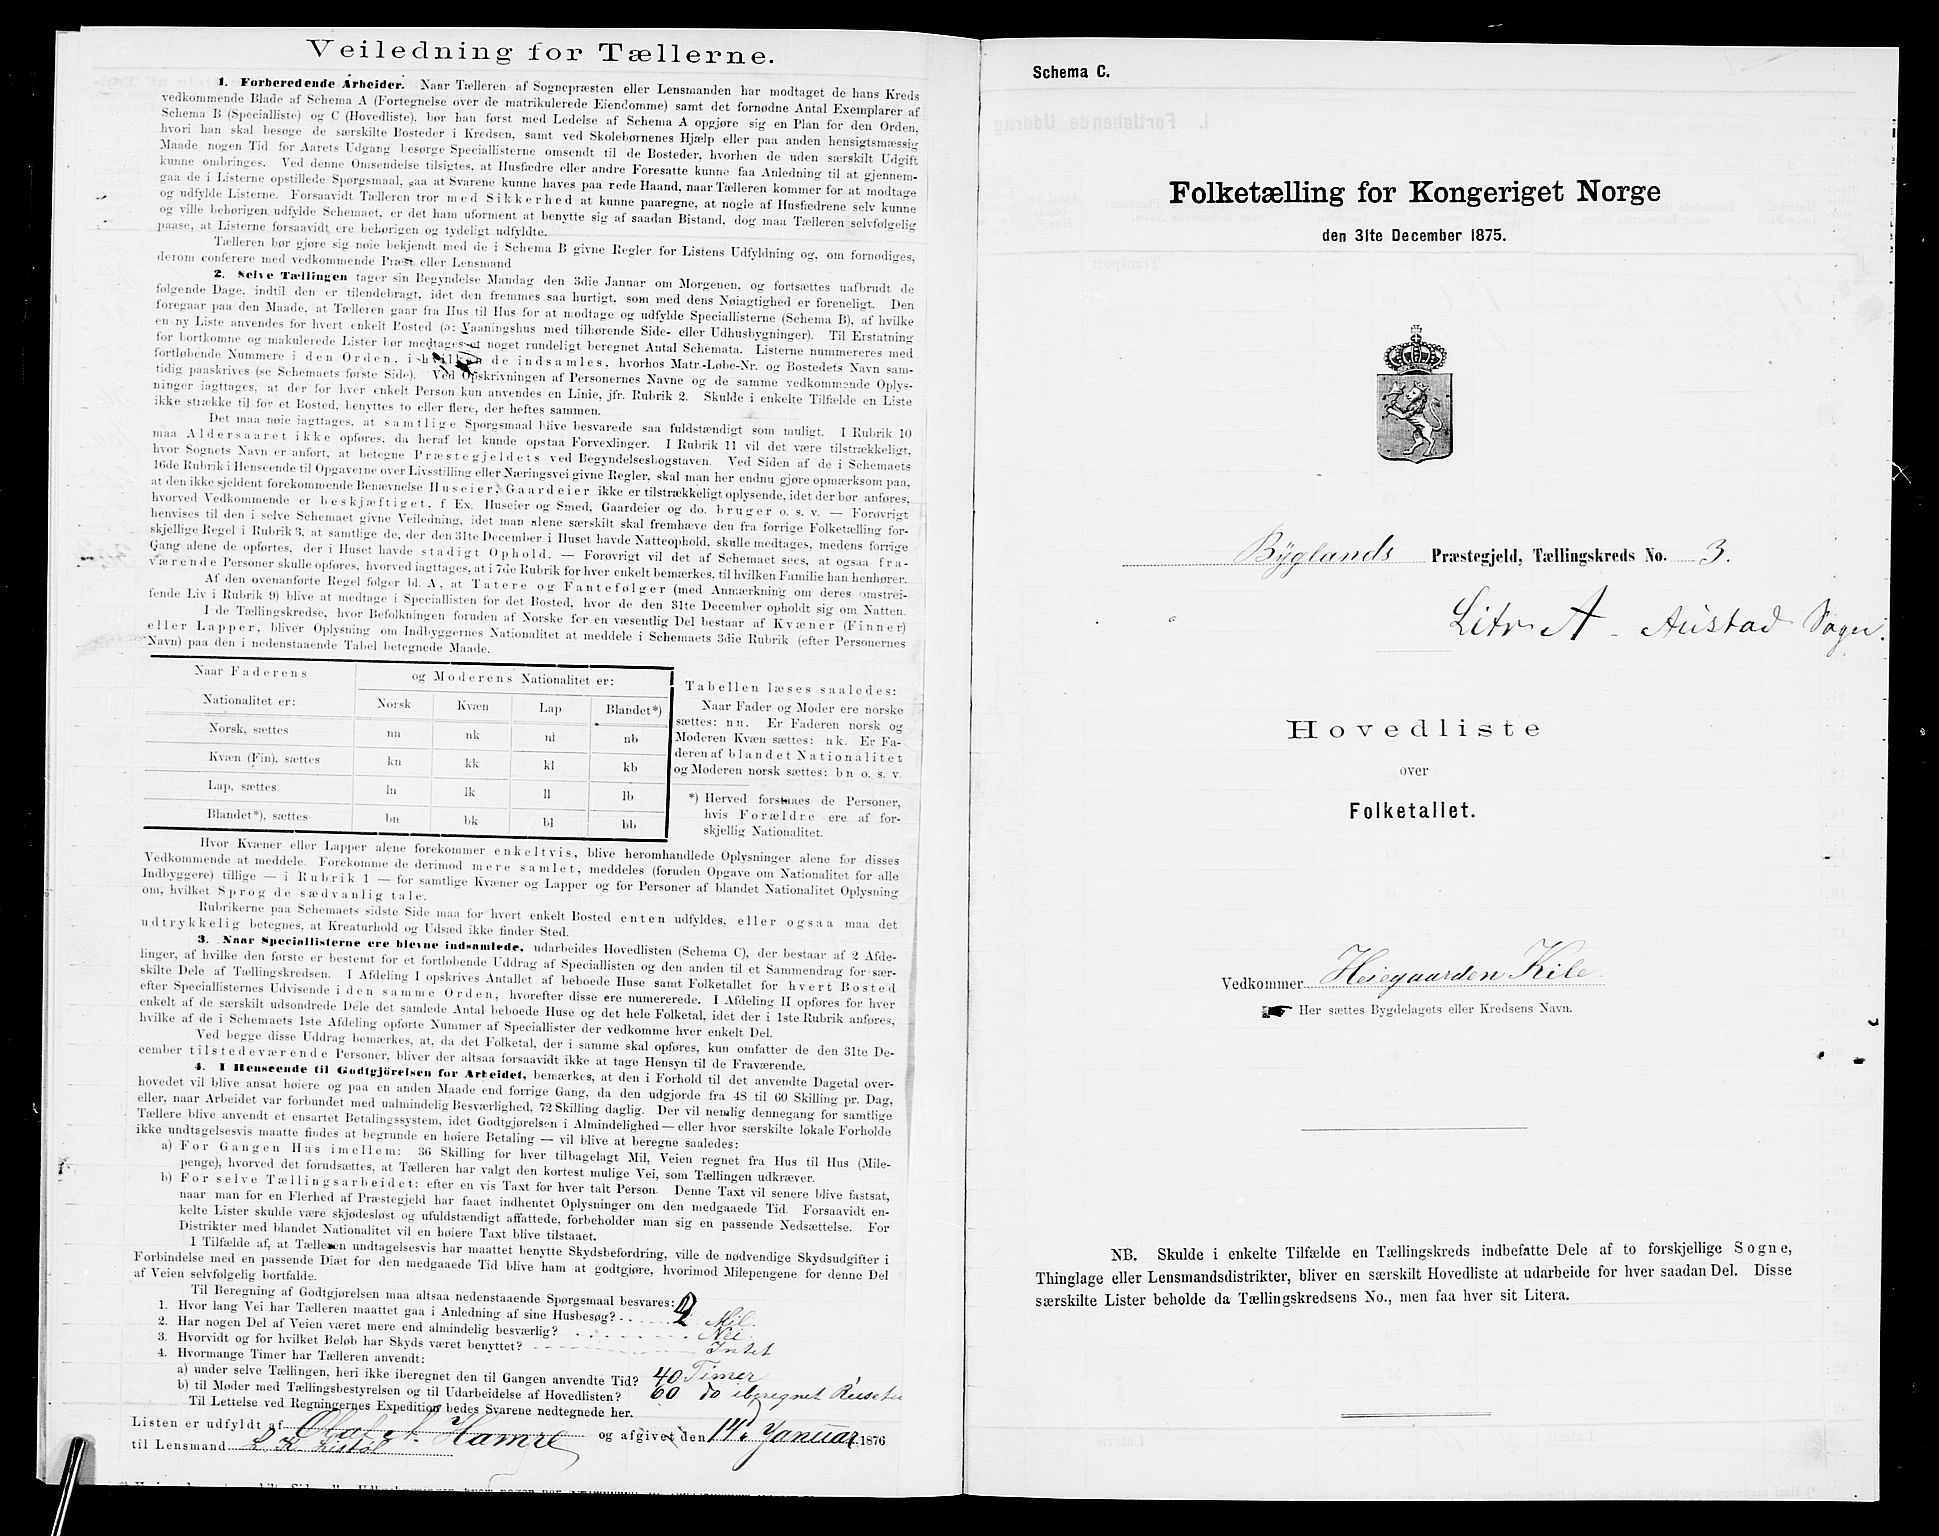 Veiledning for Tællerne.
1. Forberedende Arbeider. Naar Tælleren af Sognepræsten eller Lensmanden har modtaget de hans Kreds
vedkommende Blade af Schema A (Fortegnelse over de matrikulerede Eiendomme) samt det fornødne Antal Exemplarer af
Schema B (Specialliste) og C (Hovedliste), bør han først med Ledelse af Schema A opgjøre sig en Plan for den Orden,
hvori han skal besøge de særskilte Bosteder i Kredsen, samt ved Skolebørnenes Hjælp eller paa anden hensigtsmæssig
Maade nogen Tid før Aarets Udgang besørge Speciallisterne omsendt til de Bosteder, hvorhen de uden særskilt Udgift
kunne ombringes. Ved denne Omsendelse tilsigtes, at Husfædre eller andre Foresatte kunne faa Anledning til at gjennem-
gaa de i Listerne opstillede Spørgsmaal, saa at Svarene kunne haves paa rede Haand, naar Tælleren kommer for at modtage
og udfylde Listerne. Forsaavidt Tælleren tror med Sikkerhed at kunne paaregne, at nogle af Husfædrene selv kunne
og ville behørigen udfylde Schemaet, er det ham uforment at benytte sig af saadan Bistand, dog maa Tælleren selvfølgelig
paase, at Listerne forsaavidt ere behørigen og tydeligt udfyldte.
Tælleren bør gjøre sig nøie bekjendt med de i Schema B givne Regler for Listens Udfyldning og, om fornødiges,
derom conferere med vedkommende Præst eller Lensmand
2. Selve Tællingen tager sin Begyndelse Mandag den 3die Januar om Morgenen, og fortsættes uafbrudt de
følgende Dage, indtil den er tilendebragt, idet den fremmes saa hurtigt, som med dens Nøiagtighed er foreneligt. Den
foregaar paa den Maade, at Tælleren gaar fra Hus til Hus for at modtage og udfylde Speciallisterne (Schema B), af hvilke
en ny Liste anvendes for hvert enkelt Bosted (ɔ: Vaaningshus med tilhørende Side- eller Udhusbygninger). Til Erstatning
for bortkomne og makulerede Lister bør medtages et noget rundeligt beregnet Antal Schemata. Listerne nummereres med
fortløbende Nummere i den Orden, i hvilken de indsamles, hvorhos Matr.-Løbe-Nr. og Bostedets Navn sam-
tidig paaskrives (se Schemaets første Side). Ved Opskrivningen af Personernes Navne og de samme vedkommende Oplys-
ninger iagttages, at der for hver enkelt Person kun anvendes en Linie, jfr. Rubrik 2. Skulde i enkelte Tilfælde en Liste
ikke strække til for et Bosted, benyttes to eller flere, der heftes sammen.
Det maa nøie iagttages, at samtlige Spørgsmaal blive besvarede saa fuldstændigt som muligt. I Rubrik 10
maa Aldersaaret ikke opføres, da heraf let kunde opstaa Forvexlinger. I Rubrik 11 vil det være tilstrækkeligt,
hvor Sognets Navn er anført, at betegne Præstegjeldets ved Begyndelsesbogstaven. Ved Siden af de i Schemaets
16de Rubrik i Henseende til Opgaverne over Livsstilling eller Næringsvei givne Regler, skal man her endnu gjøre opmærksom paa,
at den ikke sjeldent forekommende Benævnelse Huseier, Gaardeier ikke er tilstrækkeligt oplysende, idet der bør anføres,
hvorved Vedkommende er beskjæftiget, f Ex. Huseier og Smed, Gaardeier og do. bruger o. s. v. — Forøvrigt
henvises til den i selve Schemaet givne Veiledning, idet man alene særskilt skal fremhæve den fra forrige Folketælling for-
skjellige Regel i Rubrik 3, at samtlige de, der den 31te December i Huset havde Natteophold, skulle medtages, medens forrige
Gang alene de opførtes, der i Huset havde stadigt Ophold. — Forøvrigt vil det af Schemaet sees, at ogsaa fra-
værende Personer skulle opføres, hvorved iagttages, at i 7de Rubrik for hver enkelt bemærkes, til hvilken Familie han henhører.
Af den ovenanførte Regel følger bl. A, at Tatere og Fantefølger (med Anmærkning om deres omstrei-
fende Liv i Rubrik 9) blive at medtage i Speciallisten for det Bosted, hvor de den 31te December opholdt sig om Natten.
I de Tællingskredse, hvor Befolkningen foruden af Norske for en væsentlig Del bestaar af Kvæner (Finner)
eller Lapper, bliver Oplysning om Indbyggernes Nationalitet at meddele i Schemaets 3die Rubrik (efter Personernes
Navn) paa den i nedenstaaende Tabel betegnede Maade.
Naar Faderens og Moderens Nationalitet er:
Nationalitet er: Norsk Kvæn Lap Blandet*)
Norsk, sættes nn nk nl nb
Kvæn (Fin), sættes kn kk kl kb
Lap, sættes ln lk ll lb
Blandet*), sættes bn bk bl bb
Tabellen læses saaledes:
Naar Fader og Moder ere norske
sættes: nn. Er Faderen norsk og
Moderen Kvæn sættes: nk. Er Fa-
deren af blandet Nationalitet
og Moderen norsk sættes: bn o. s. v.
*) Herved forstaaes de Personer,
hvis Forældre ere af for-
skjellig Nationalitet.
Hvor Kvæner eller Lapper alene forekommer enkeltvis, blive heromhandlede Oplysninger alene for disses
Vedkommende at meddele. Forekomme de derimod mere samlet, meddeles (foruden Opgave om Nationalitet for alle
Indbyggere) tillige — i Rubrik 1 — for samtlige Kvæner og Lapper og for Personer af blandet Nationalitet Oplysning
om, hvilket Sprog de sædvanlig tale.
Rubrikerne paa Schemaets sidste Side maa for hvert enkelt Bosted enten udfyldes, eller ogsaa maa det
udtrykkelig betegnes, at Kreaturhold og Udsæd ikke finder Sted.
3. Naar Speciallisterne ere blevne indsamlede, udarbeides Hovedlisten (Schema C), der bestaar af 2 Afde-
linger, af hvilke den første er bestemt for et fortløbende Uddrag af Speciallisten og den anden til et Sammendrag for sær-
skilte Dele af Tællingskredsen. I Afdeling I opskrives Antallet af beboede Huse samt Folketallet for hvert Bosted
efter Speciallisternes Udvisende i den samme Orden, hvorefter disse ere numererede. I Afdeling II opføres for hver
enkelt af de særskilt udsondrede Dele det samlede Antal beboede Huse og det hele Folketal, idet der i 1ste Rubrik anføres,
hvilke af de i Schemaets 1ste Afdeling opførte Nummer af Speciallister der vedkomme hver enkelt Del.
Ved begge disse Uddrag bemærkes, at, da det Folketal, der i samme skal opføres, kun omfatter de den 31te De-
cember tilstedeværende Personer, bliver der altsaa forsaavidt ikke at tage Hensyn til de Fraværende.
4. I Henseende til Godtgjörelsen for Arbeidet, bemærkes, at den i Forhold til det anvendte Dagetal over-
hovedet vil blive ansat høiere og paa en anden Maade end forrige Gang, da den udgjorde fra 48 til 60 Skilling pr. Dag,
eller, naar Arbeidet var forbundet med ualmindelig Besværlighed, 72 Skilling daglig. Der vil nemlig dennegang for samtlige
Tællere blive anvendt et ensartet Betalingssystem, idet Godtgjørelsen i Almindelighed — eller hvor særskilte lokale Forholde
ikke undtagelsesvis maatte findes at begrunde en høiere Betaling — vil blive at beregne saaledes:
a) For Gangen Hus imellem: 36 Skilling for hver tilbagelagt Mil, Veien regnet fra Hus til Hus (Mile-
penge), hvorved det forudsættes, at Tælleren har valgt den kortest mulige Vei, som Tællingen udkræver.
b) For selve Tællingsarbeidet: efter en vis Taxt for hver talt Person. Denne Taxt vil senere blive fastsat,
naar man for en Flerhed af Præstegjeld har faaet indhentet Oplysninger om den medgaaede Tid. Forsaavidt en-
kelte Lister skulde være skjødesløst og ufuldstændigt affattede, forbeholder man sig en passende Nedsættelse. For
Distrikter med blandet Nationalitet vil en høiere Taxt blive tilstaaet.
I Tilfælde af, at Tælleren undtagelsesvis har maattet benytte Skydsbefordring, ville de nødvendige Skydsudgifter i
Forbindelse med en passende Diæt for den medgaaede Tid blive ham at godtgjøre, hvorimod Milepengene for denne Del
af Veien selvfølgelig bortfalde.
Til Beregning af Godtgjørelsen maa altsaa nedenstaaende Spørgsmaal besvares:
1. Hvor lang Vei har Tælleren maattet gaa i Anledning af sine Husbesøg? 2 Mil.
2. Har nogen Del af Veien været mere end almindelig besværlig? Nei.
3. Hvorvidt og for hvilket Beløb har Skyds været benyttet? Intet
4. Hvormange Timer har Tælleren anvendt:
a) under selve Tællingen, heri ikke iberegnet den til Gangen anvendte Tid? 40 Timer
b) til Møder med Tællingsbestyrelsen og til Udarbeidelse af Hovedlisten? 60 do iberegnet
Til Lettelse ved Regningernes Expedition bedes Svarene nedtegnede her.
Listen er udfyldt af Olaf A. Hamre og afgivet den 14. Januar 1876
til Lensmand
Schema C.
Folketælling for Kongeriget Norge
den 31te December 1875.
Byglands Præstegjeld, Tællingskreds No. 3.
Litr A. Austad Sogn.
Hovedliste
over
Folketallet.
Vedkommer Heiegaarden Kile.
Her sættes Bygdelagets eller Kredsens Navn.
NB. Skulde i enkelte Tilfælde en Tællingskreds indbefatte Dele af to forskjellige Sogne,
Thinglage eller Lensmandsdistrikter, bliver en særskilt Hovedliste at udarbeide for hver saadan Del. Disse
særskilte Lister beholde da Tællingskredsens No., men faa hver sit Litera.